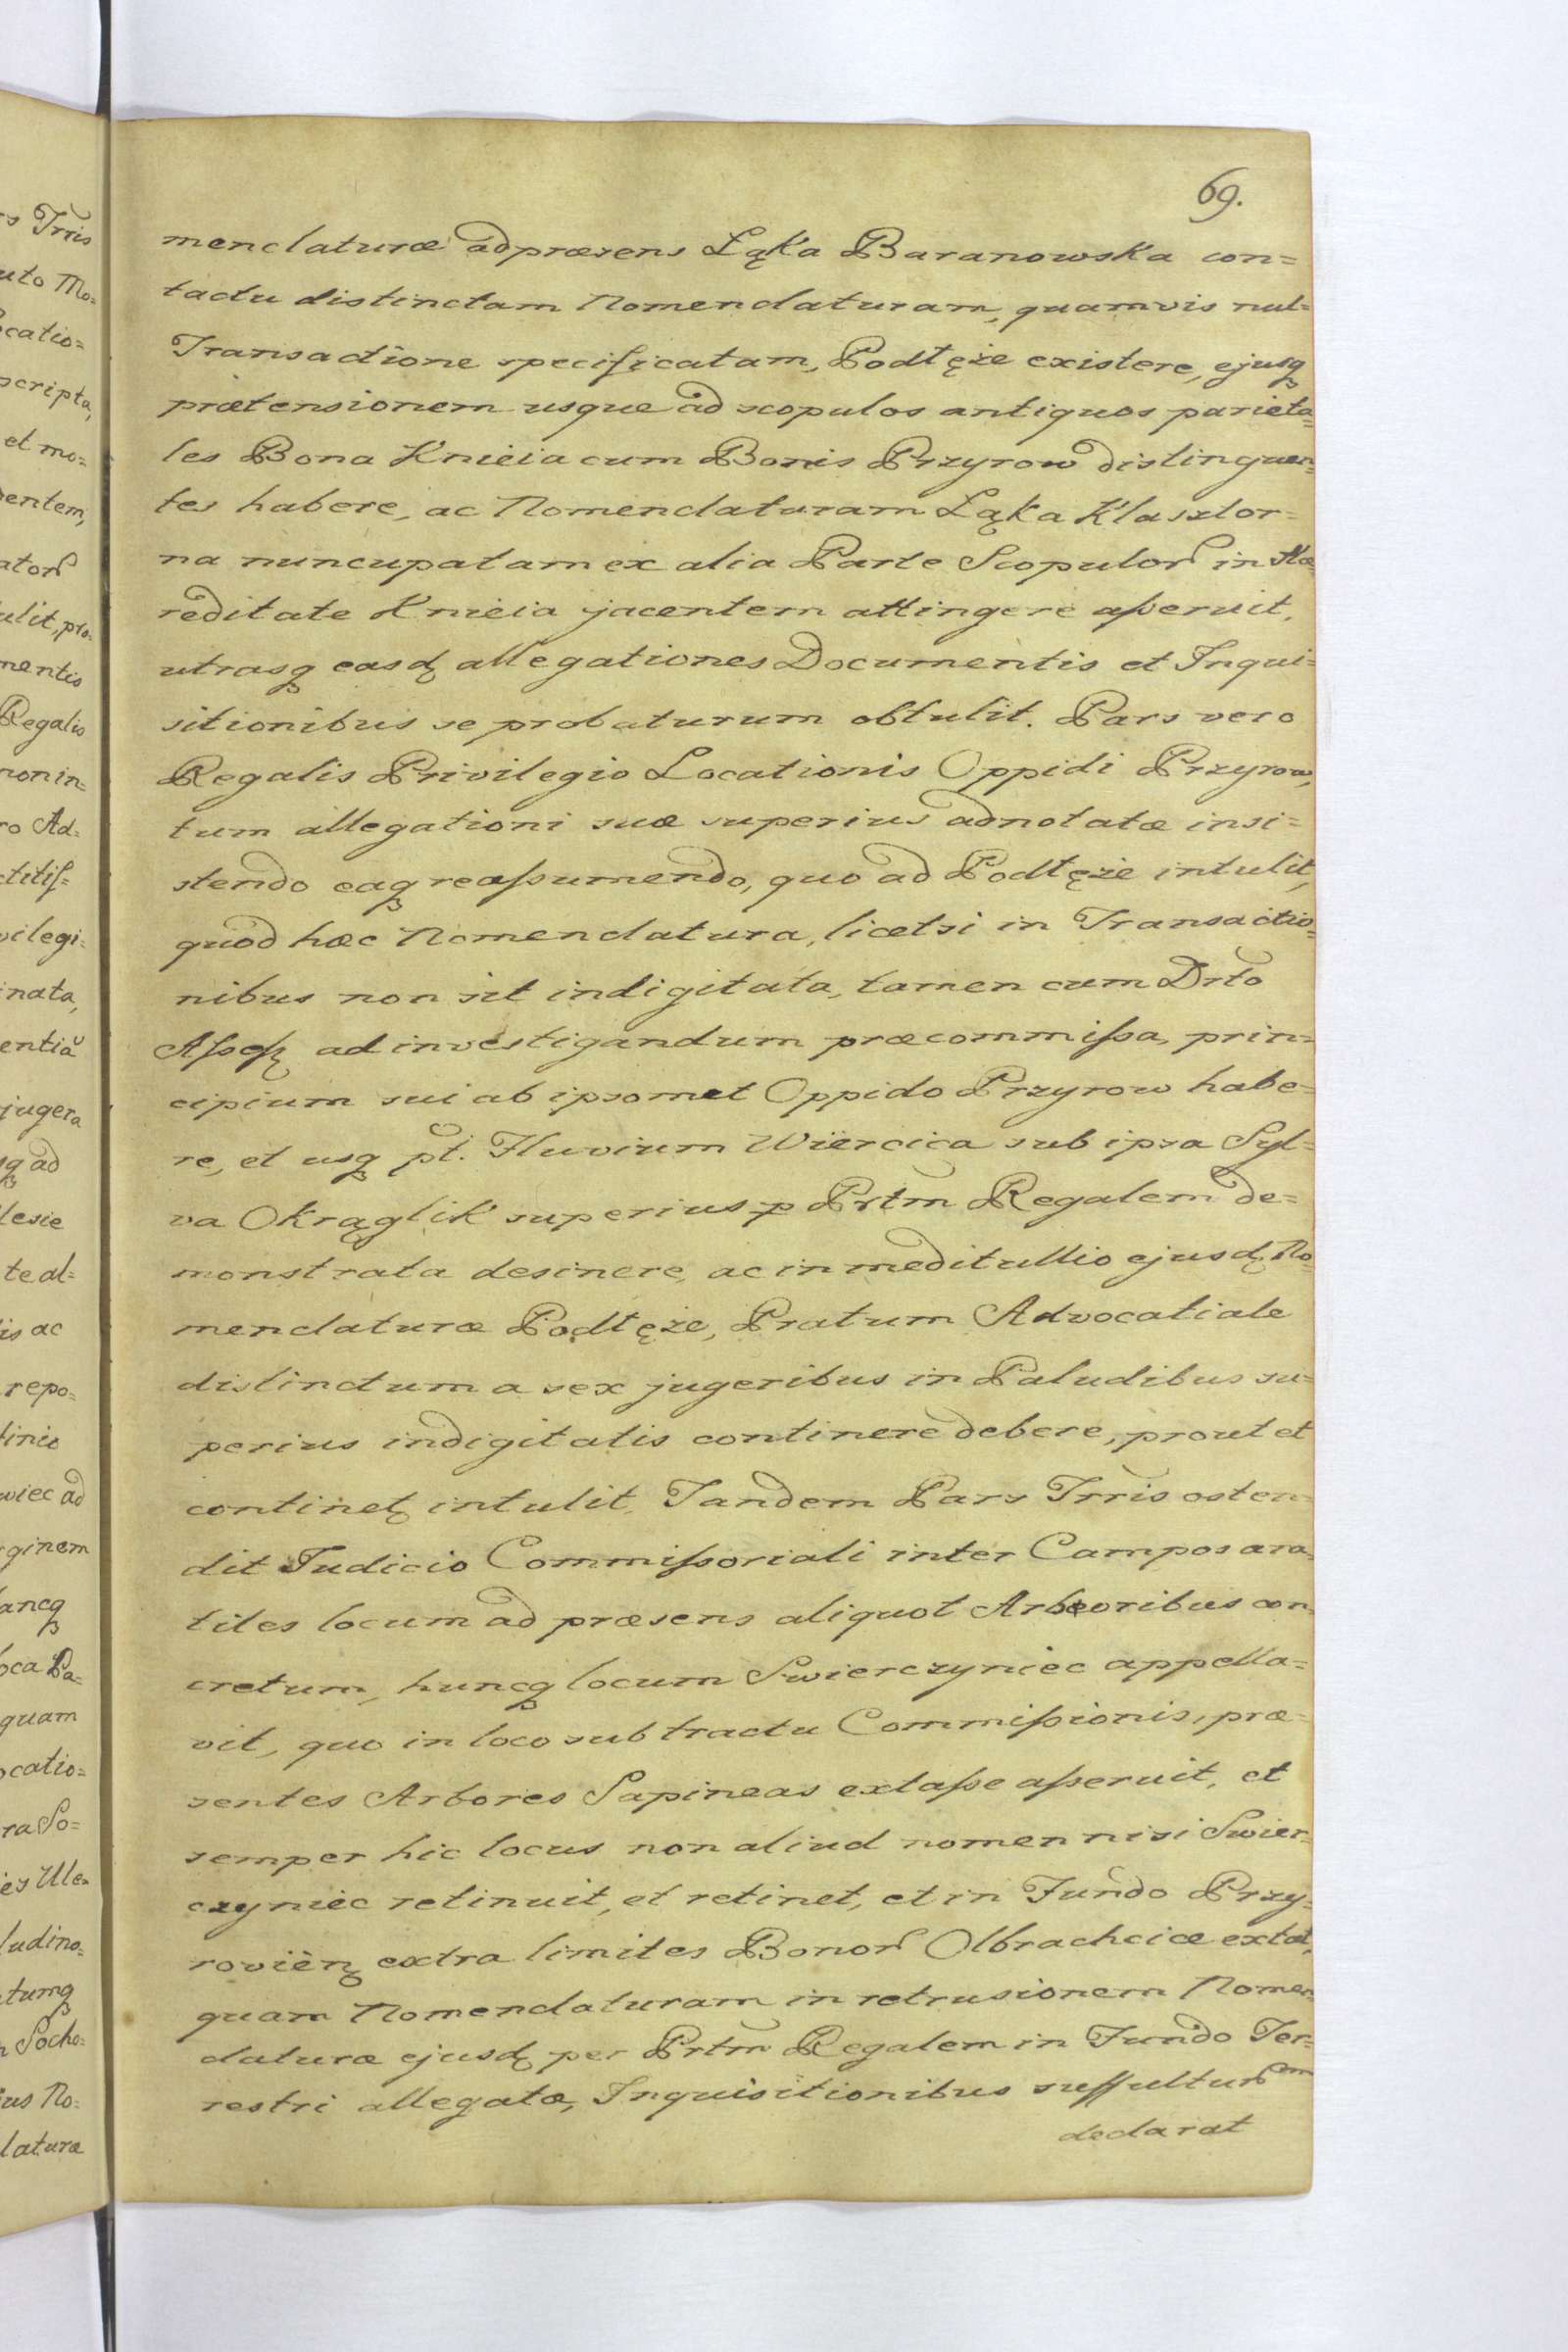 69.
menclaturæ ad præsens Łąka Baranowska con=
tactu distinctam Nomenclaturam, quamvis nul=
Transactione specificatam, Podłęże existere, ejusq
prætensionem usque ad scopulos antiquos parieta=
les Bona Knieia cum Bonis Przyrow distinguen=
tes habere, ac Nomenclaturam Łąka Klasztor=
na nuncupatam ex alia Parte Scopulor in Hæ=
reditate Knieia jacentem attingere aſseruit,
utrasq easd allegationes Documentis et Inqui=
sitionibus se probaturum obtulit. Pars vero
Regalis Privilegio Locationis Oppidi Przyrow,
tum allegationi suæ superius adnotatæ insi=
stendo eaq reaſsumendo, quo ad Podłęże intulit,
quod hæc Nomenclatura, licet si in Transactio=
nibus non sit indigitata, tamen cum Drto
Aſseſs ad investigandum præcommiſsa, prin=
cipium sui ab ipsomet Oppido Przyrow habe=
re, et usq pt. Fluvium Wiercica sub ipsa Syl=
va Okrąglik superius p Prtm Regalem de=
monstrata desinere, ac in meditullio ejusd No=
menclaturæ Podłęże, Pratum Advocatiale
distinctum a sex jugeribus in Paludibus su=
perius indigitatis continere debere, prout et
continet intulit. Tandem Pars Trris osten=
dit Judicio Commiſsoriali inter Campos ara=
tiles locum ad præsens aliquot Arboribus con=
cretum, huncq locum Swierczyniec appella=
vit, quo in loco sub tractu Commiſsionis, præ=
sentes Arbores Sapineas extaſse aſseruit, et
semper hic locus non aliud nomen nisi Swier=
czyniec retinuit, et retinet, et in Fundo Przy=
rovien extra limites Bonor Olbrachcice extat,
quam Nomenclaturam in retrusionem Nomen=
claturæ ejusd per Prtm Regalem in Fundo Ter=
restri allegatæ, Inquisitionibus suffultur em
declarat